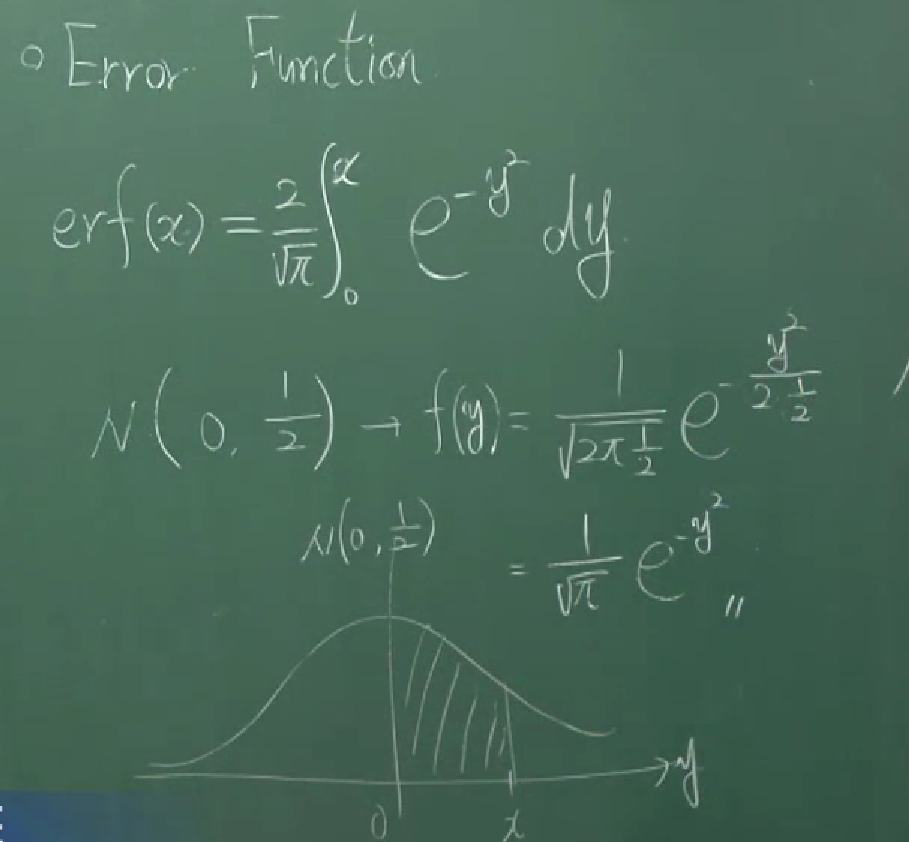 ○ Error Function
erf(x) = 2/√π ∫₀ˣ e^(-y²) dy
N(0, 1/2) → f(y) = 1/√(2π 1/2) e^(-y²/(2·1/2))
= 1/√π e^(-y²) 〃
N(0, 1/2)
y
0 x